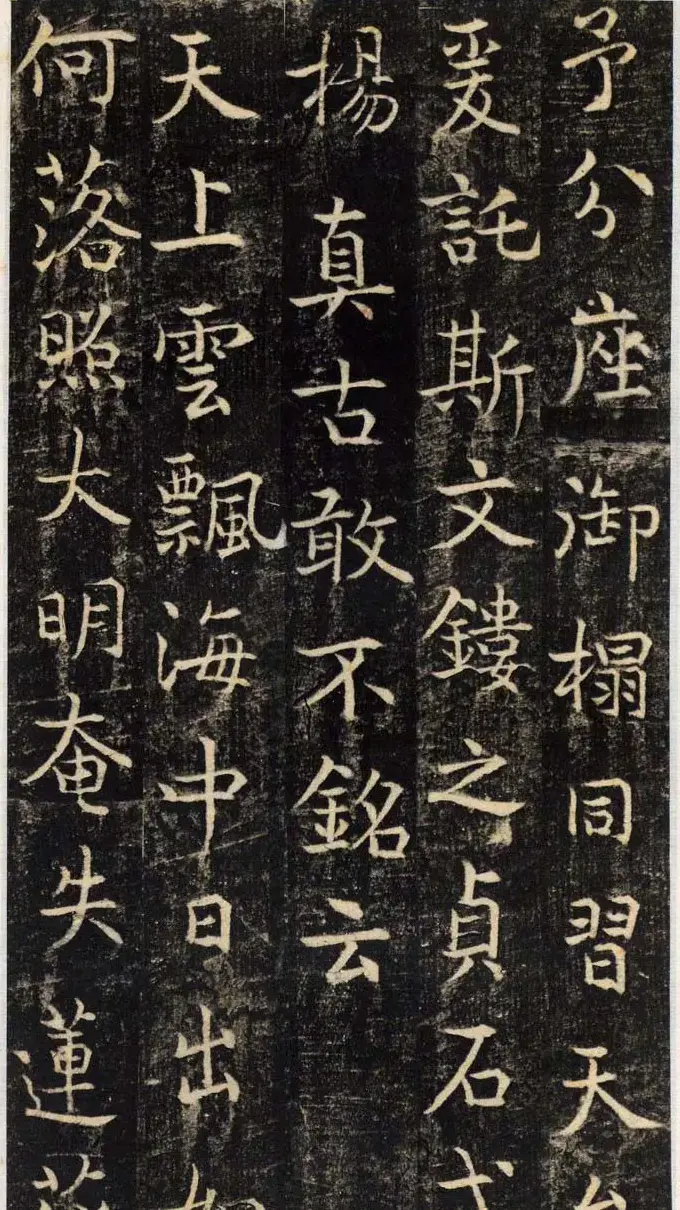 予分座御榻同習天
爰託斯文鏤之貞石
揚真古敢不銘云
天上雲飄海中日出
何落照大明奄失蓮